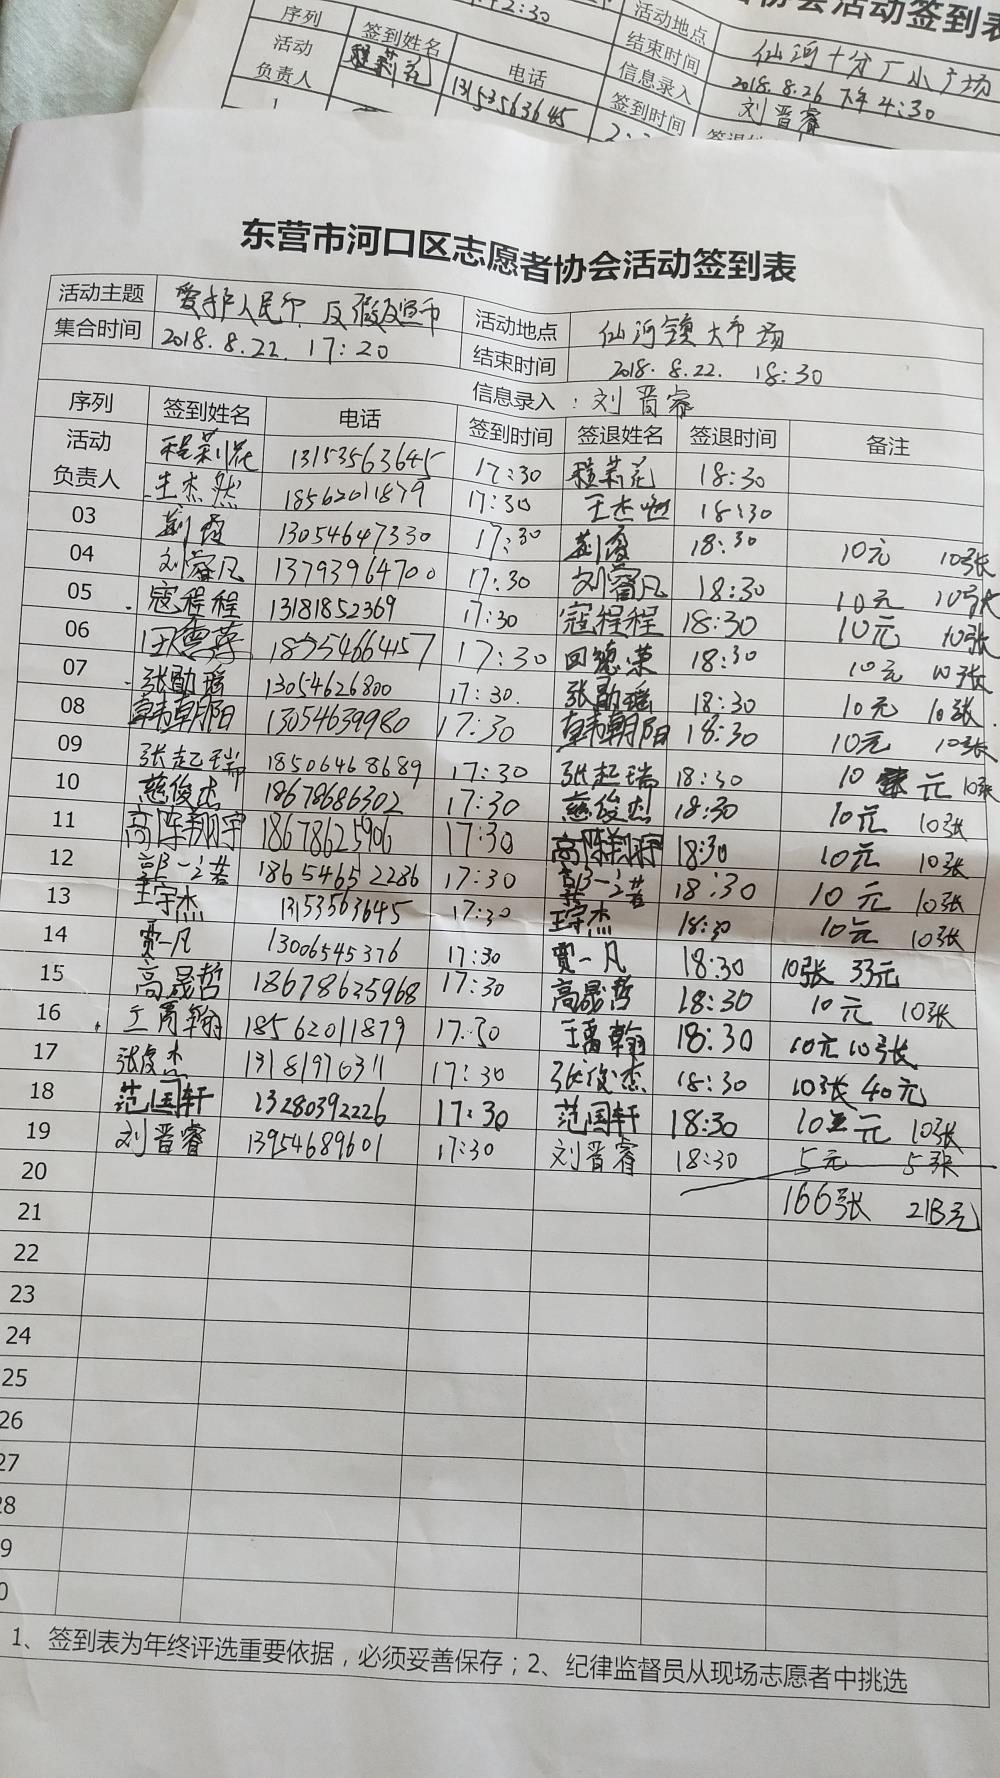 序列 签到姓名 2:30 活动地点 仙河十分厂小广场
活动 程莉花 电话 结束时间 2018.8.26 下午4:30
负责人 13153563645 信息录入 刘晋睿
签到时间
东营市河口区志愿者协会活动签到表
活动主题 爱护人民币 反假 活动地点 仙河镇大市场
集合时间 2018.8.22. 17:20 结束时间 2018.8.22. 18:30
信息录入:刘晋睿
序列 签到姓名 电话 签到时间 签退姓名 签退时间 备注
活动 程莉花 13153563645 17:30 程莉花 18:30
负责人 王杰然 18562011879 17:30 王杰 18:30
03 荆霞 13054647330 17:30 荆霞 18:30 10元 10张
04 刘睿凡 13793964700 17:30 刘睿凡 18:30 10元 10张
05 寇程程 13181852369 17:30 寇程程 18:30 10元 10张
06 田德荣 17:30 田德荣 18:30 10元 10张
07 张勋瑶 13054626800 17:30 张勋瑶 18:30 10元 10张
08 韩朝阳 13054639980 17:30 韩朝阳 18:30 10元 10张
09 张起瑞 18506468689 17:30 张起瑞 18:30 10元 10张
10 慈俊杰 18678686302 17:30 慈俊杰 18:30 10元 10张
11 高陈翔宇 18678625906 17:30 高陈翔宇 18:30 10元 10张
12 18654652286 17:30 18:30 10元 10张
13 王宇杰 13153563645 17:30 王宇杰 18:30 10元 10张
14 贾一凡 13006545376 17:30 贾一凡 18:30 10张 33元
15 高晟哲 18678635968 17:30 高晟哲 18:30 10元 10张
16 王禹翰 18562011879 17:30 王禹翰 18:30 10元 10张
17 张俊杰 13181970311 17:30 张俊杰 18:30 10张 40元
18 范国轩 13280392226 17:30 范国轩 18:30 10元 10张
19 刘晋睿 13954689601 17:30 刘晋睿 18:30 5元 5张
20 166张 218元
21
22
23
24
25
26
27
28
9
0
1、签到表为年终评选重要依据，必须妥善保存；2、纪律监督员从现场志愿者中挑选